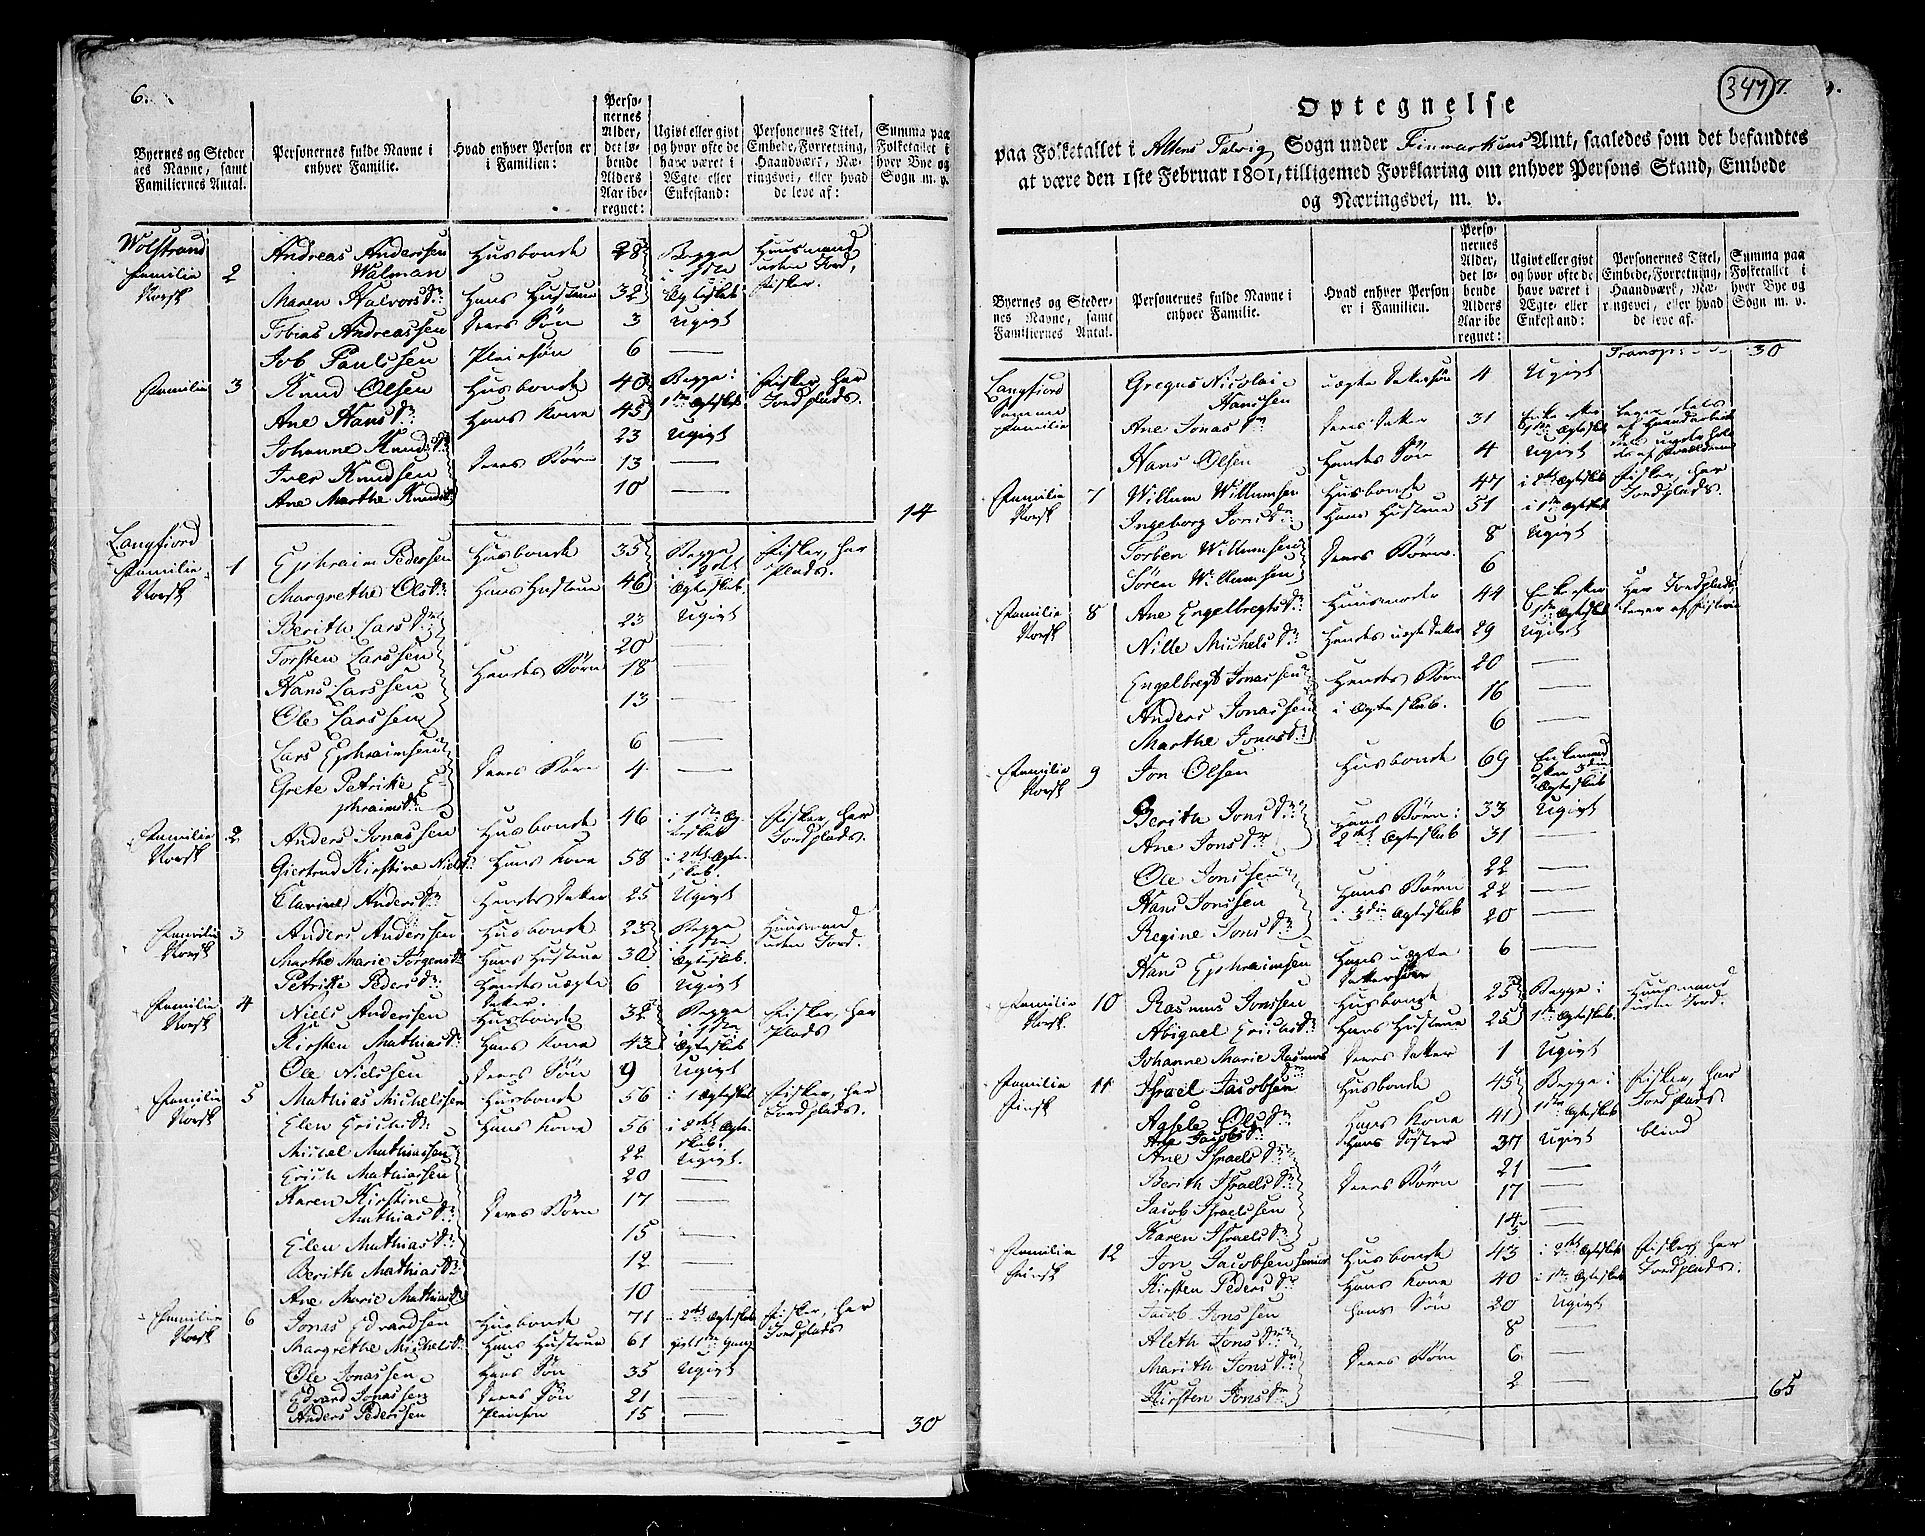 6.
Byernes og Steder nes Navne, samt Familiernes Antal.
Personernes fulde Navne i enhver Familie.
Hvad enhver Person er i Familien:
Personernes Alder, det løbende Alders Aar iberegnet:
Ugivt eller givt og hvor ofte de have været i Ægte eller Enkestand:
Personernes Titel, Embede, Forretning, Haandværk, Næringsvei, eller hvad de leve af:
Summa paa Folketallet i hver Bye og Sogn m. v.
Wolstrand
Familie 2 Andreas Anderssen Walman Husbonde 28 Begge i 1ste Ægteskab Huusmand uden Jord, Fisker.
Norsk
Maren Halvorsdr: Hans Hustrue 32
Tobias Andreassen Deres Søn 3 Ugivt
Job Paulssen Pleiesøn 6 —
Familie 3 Knud Olsen Husbonde 40 Begge i 1ste Ægteskab Fisker, har Jordplads.
Ane Hansdr: Hans Kone 45
Johanne Knudsdr 23 Ugivt
Iver Knudsen Deres Børn 13 —
Ane Marthe Knudsdr 10 —
14
Langfiord
Familie 1 Ephraim Pedersen Husbonde 35 Begge i 2det Ægteskab. Fisker, har Plads.
Norsk
Margrethe Olsdr: Hans Hustrue 46
Berith Larsdr: 23 Ugivt
Torsten Larssen 20 —
Hans Larssen Hendes Børn 18 —
Ole Larssen 13 —
Lars Ephraimsen 6 —
Grete Petrikke Ephraimsdr: Deres Børn 4 —
Familie 2 Anders Jonassen Husbonde 46 i 1ste Ægteskab Fisker, har Jordplads.
Norsk
Giertrud Kirstine Nielsdr: Hans Kone 58 i 2det Ægteskab.
Andersdr: Hendes Datter 25 Ugivt
Familie 3 Anders Anderssen Husbonde 23 Begge i 1ste Ægteskab. Huusmand uden Jord.
Norsk
Marthe Marie Jørgensdr Hans Hustrue 30
Petrikke Pedersdr: Hendes uægte Datter. 6 Ugivt
Familie 4 Niels Andersen Husbonde 32 Begge i 1ste Ægteskab Fisker, har Plads
Norsk
Kirsten Mathiasdr: Hans Kone 43
Ole Nielssen Deres Søn 9 Ugivt
Familie 5 Mathias Michelssen Husbonde 56 i 1 Ægteskab Fisker, har Jordplads.
Norsk
Elen Erichsdr: Hans Kone 56 i 2det Ægteskab.
Michel Mathiassen 22 Ugivt.
Erich Mathiassen 20 —
Karen Kirstine Mathiasdr: Deres Børn 17 —
Elen Mathiasdr: 15 —
Berith Mathiasdr: 12 —
Ane Marie Mathiasdr 10 —
Familie 6 Jonas Edvardsen Husbonde 71 i 2det Ægteskab Fisker, har Jordplads
Norsk
Margrethe Michelsdr: Hans Hustrue 61 gift 1ste Gang
Ole Jonassen Hans Søn 35 Ugivt
Edvard Jonassen Deres Søn 21 —
Anders Pederssen Pleiesøn 15 —
30
347 7.
Optegnelse
paa Folketallet i Altens Talvig Sogn under Finmarkens Amt, saaledes som det befandtes
at være den 1ste Februar 1801, tilligemed Forklaring om enhver Persons Stand, Embede
og Næringsvei, m. v.
Byernes og Stedernes Navne, samt Familiernes Antal.
Personernes fulde Navne i enhver Familie.
Hvad enhver Person er i Familien.
Personernes Alder, det løbende Alders Aar iberegnet:
Ugivt eller givt og hvor ofte de have været i Ægte eller Enkestand:
Personernes Titel, Embede, Forretning, Haandværk, Næringsvei, eller hvad de leve af.
Summa paa Folketallet i hver Bye og Sogn m. v.
30
Langfiord
Samme Familie
Gregus Nicolai Hanssen uægte Dattersøn 4 Ugivt
Ane Jonasdr: Deres Datter 31 Enke efter 1ste Ægteskab
Hans Olsen Hendes Søn 4 Ugivt
Familie 7 Willum Willumsen Husbonde 47 i 2det Ægteskab Fisker, har Jordplads.
Norsk
Ingeborg Jonsdr: Hans Hustrue 51 i 1ste Ægteskab
Torben Willumsen Deres Børn. 8 Ugivt
Søren Willumsen 6
Familie 8 Ane Engelbregtsdr: Huusmoder 44 Enke efter 1ste Ægteskab Har Jordplads, lever af Fiskerie
Norsk
Nille Michelsdr: Hendes uægte Datter 29 Ugivt
Engelbregt Jonassen Hendes Børn i Ægteskab. 20 —
Anders Jonassen 16 —
Marthe Jonasdr: 6 —
Familie 9 Jon Olsen Husbonde 69 Enkemand efter 3die Ægteskab
Norsk
Berith Jonsdr: Hans Børn i 2det Ægteskab 33 Ugivt
Ane Jonsdr: 31 —
Ole Jonssen 22 —
Hans Jonssen Hans Børn i 3die Ægteskab 22 —
Regine Jonsdr: 20 —
Hans Ephraimsen Hans uægte Dattersøn 6 —
Familie 10 Rasmus Jonssen Husbonde 25 Begge i 1ste Ægteskab. Huusmand uden Jord.
Norsk.
Abigael Erichsdr: Hans Hustrue 25
Johanne Marie Rasmusdr: Deres Datter 1 Ugivt
Familie 11 Israel Jacobsen Husbonde 45 Begge i 1ste Ægteskab Fisker, har Jordplads
Finsk
Olsdr: Hans Kone 41
Ane Jacobsdr: Hans Søster 37 Ugivt blind
Ane Israelsdr: 21 —
Berith Israelsdr: Deres Børn 17 —
Jacob Israelssen 14 —
Karen Israelsdr: 5
Familie 12 Jon Jacobsen Senior Husbonde 43 i 2det Ægteskab Fisker, har Jordplads.
Finsk
Kirsten Pedersdr: Hans Kone 40 i 1ste Ægteskab
Jacob Jonssen Hans Søn 20 Ugivt
Aleth Jonsdr: 8 —
Marith Jonsdr: Deres Børn 6 —
Kirsten Jonsdr: 2 —
65